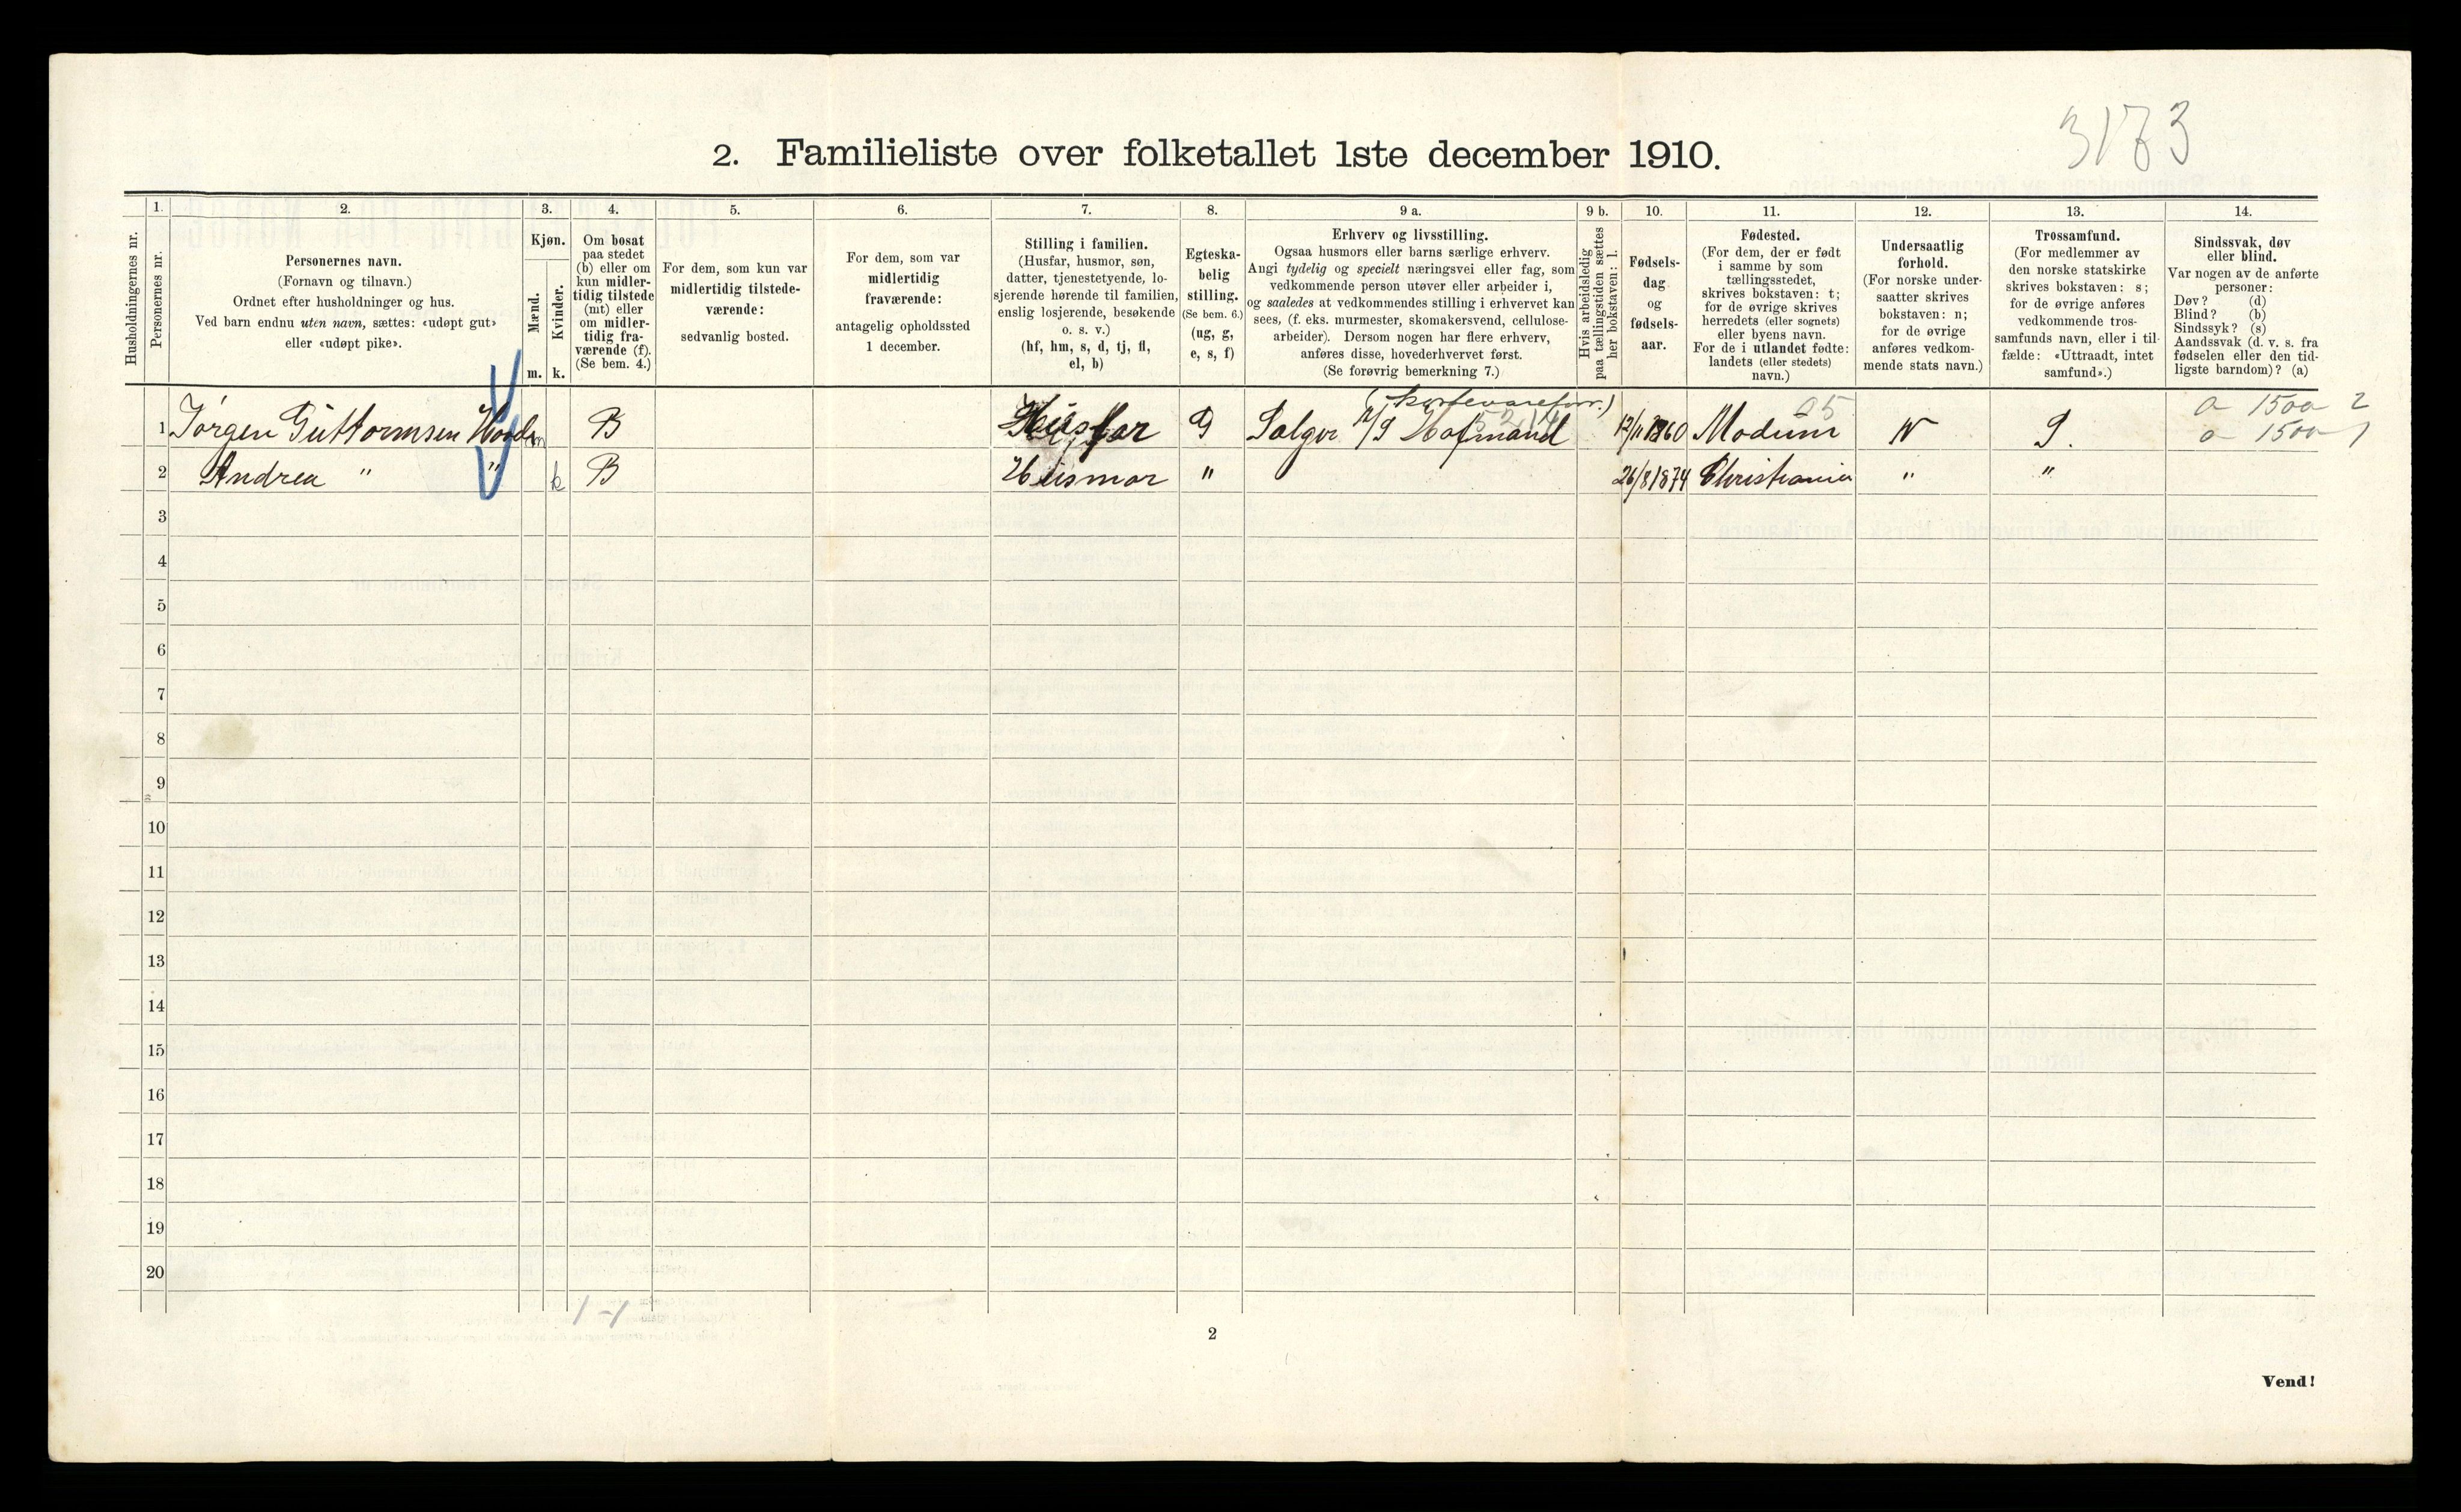 3173
2. Familieliste over folketallet 1ste december 1910.
Husholdningernes nr.
1.
Personernes nr.
2.
Personernes navn.
(Fornavn og tilnavn.)
Ordnet efter husholdninger og hus.
Ved barn endnu uten navn, sættes: «udøpt gut»
eller «udøpt pike».
3.
Kjøn.
Mænd.
Kvinder.
m. k.
4.
Om bosat
paa stedet
(b) eller om
kun midler-
tidig tilstede
(mt) eller
om midler-
tidig fra-
værende (f).
(Se bem. 4.)
5.
For dem, som kun var
midlertidig tilstede-
værende:
sedvanlig bosted.
6.
For dem, som var
midlertidig
fraværende:
antagelig opholdssted
1 december.
7.
Stilling i familien.
(Husfar, husmor, søn,
datter, tjenestetyende, lo-
sjerende hørende til familien,
enslig losjerende, besøkende
o. s. v.)
(hf, hm, s, d, tj, fl,
el, b)
8.
Egteska-
belig
stilling.
(Se bem. 6.)
(ug, g,
e, s, f)
9 a.
Erhverv og livsstilling.
Ogsaa husmors eller barns særlige erhverv.
Angi tydelig og specielt næringsvei eller fag, som
vedkommende person utøver eller arbeider i,
og saaledes at vedkommendes stilling i erhvervet kan
sees, (f. eks. murmester, skomakersvend, cellulose-
arbeider). Dersom nogen har flere erhverv,
anføres disse, hovederhvervet først.
(Se forøvrig bemerkning 7.)
9 b.
Hvis arbeidsledig
paa tællingstiden sættes
her bokstaven: l.
10.
Fødsels-
dag
og
fødsels-
aar.
11.
Fødested.
(For dem, der er født
i samme by som
tællingsstedet,
skrives bokstaven: t;
for de øvrige skrives
herredets (eller sognets)
eller byens navn.
For de i utlandet fødte:
landets (eller stedets)
navn.)
12.
Undersaatlig
forhold.
(For norske under-
saatter skrives
bokstaven: n;
for de øvrige
anføres vedkom-
mende stats navn.)
13.
Trossamfund.
(For medlemmer av
den norske statskirke
skrives bokstaven: s;
for de øvrige anføres
vedkommende tros-
samfunds navn, eller i til-
fælde: «Uttraadt, intet
samfund».)
14.
Sindssvak, døv
eller blind.
Var nogen av de anførte
personer:
Døv? (d)
Blind? (b)
Sindssyk? (s)
Aandssvak (d. v. s. fra
fødselen eller den tid-
ligste barndom)? (a)
05 a 1500 2
1 Jørgen Guttormsen m B Husfar G Salger Hofmand 12/11 1860 Modum N S. a 1500 1
2 Andrea " " k B Husmor " 26/8 1874 Christiania " "
3
4
5
6
7
8
9
10
11
12
13
14
15
16
17
18
19
20
1 - 1
2
Vend!